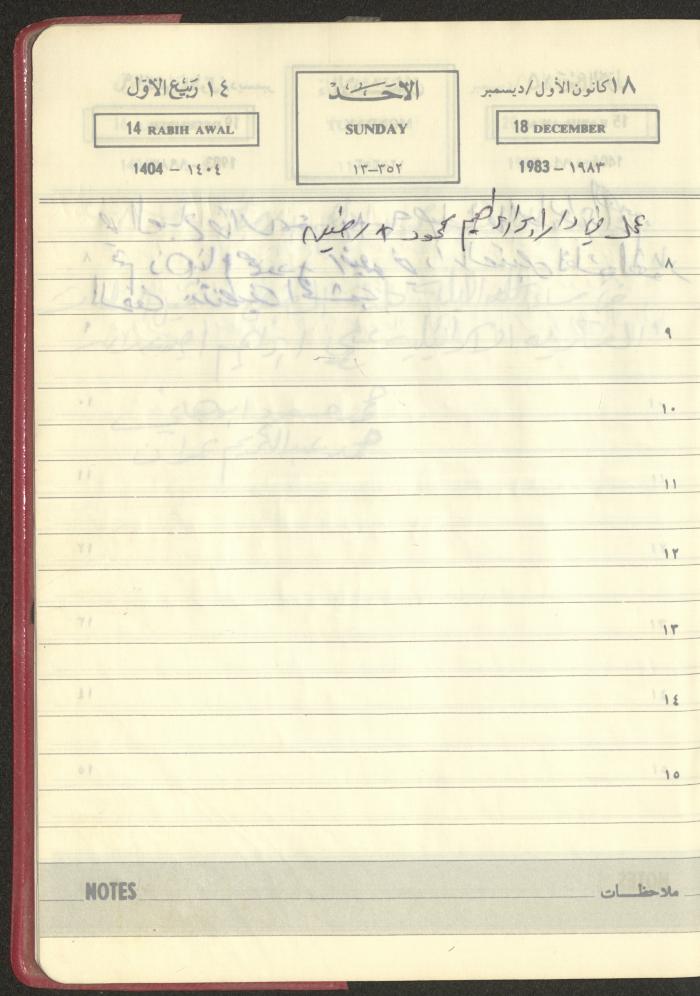 ١٨ كانون الأول/ديسمبر
الأحَد
١٤ رَبيع الأوّل
18 DECEMBER
SUNDAY
14 RABIH AWAL
1983 – ١٩٨٣
١٣–٣٥٢
1404 – ١٤٠٤
عمل في دار ابو ابراهيم محمود +
٨
٩
١٠
١١
١٢
١٣
١٤
١٥
NOTES ملاحظات